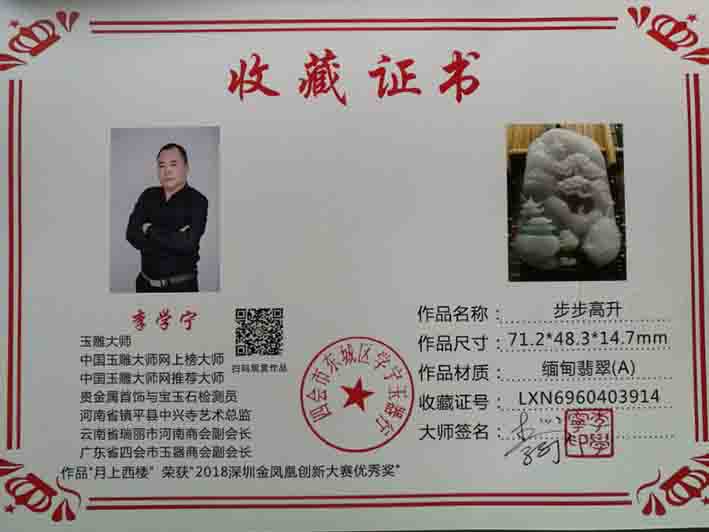 收藏证书
李学宁
玉雕大师
中国玉雕大师网上榜大师
中国玉雕大师网推荐大师
贵金属首饰与宝玉石检测员
河南省镇平县中兴寺艺术总监
云南省瑞丽市河南商会副会长
广东省四会市玉器商会副会长
作品"月上西楼" 荣获"2018深圳金凤凰创新大赛优秀奖"
扫码观赏作品
四会市东城区学宁玉器行
作品名称： 步步高升
作品尺寸： 71.2*48.3*14.7mm
作品材质： 缅甸翡翠(A)
收藏证号： LXN6960403914
大师签名：
李學寧印